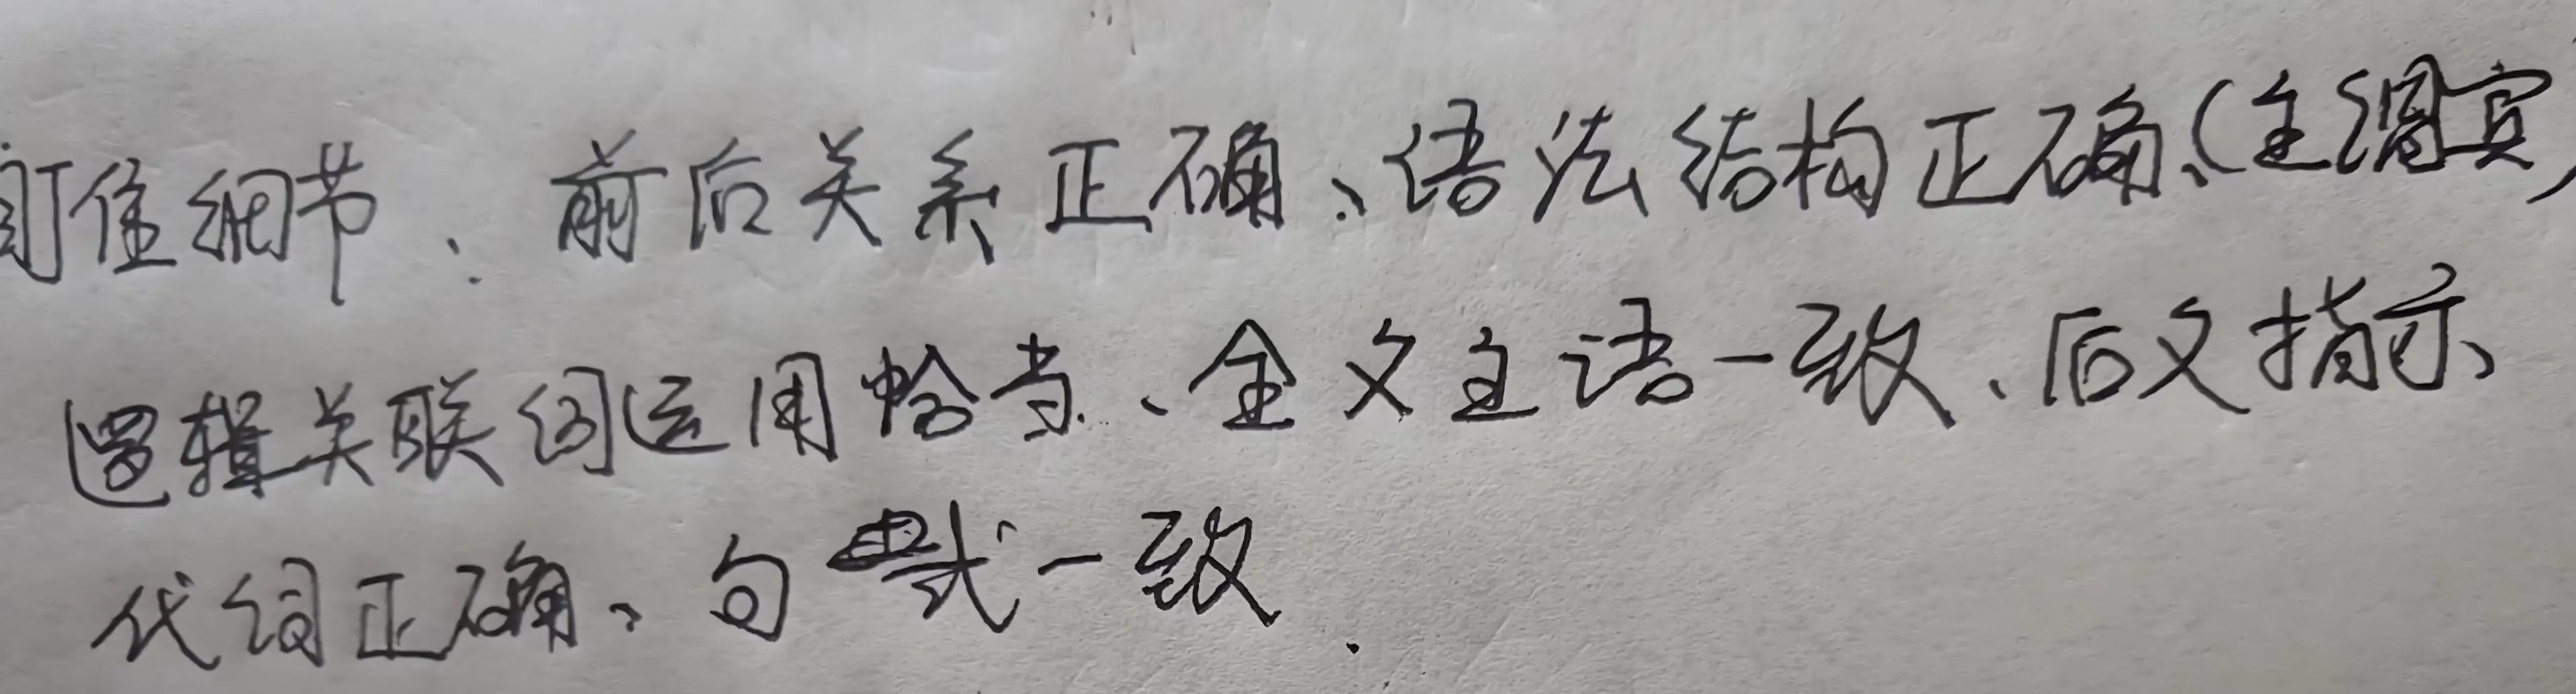 盯住细节：前后关系正确、语法结构正确、（主谓宾，
逻辑关联词运用恰当、全文主语一致、后文指示、
代词正确、句式一致.